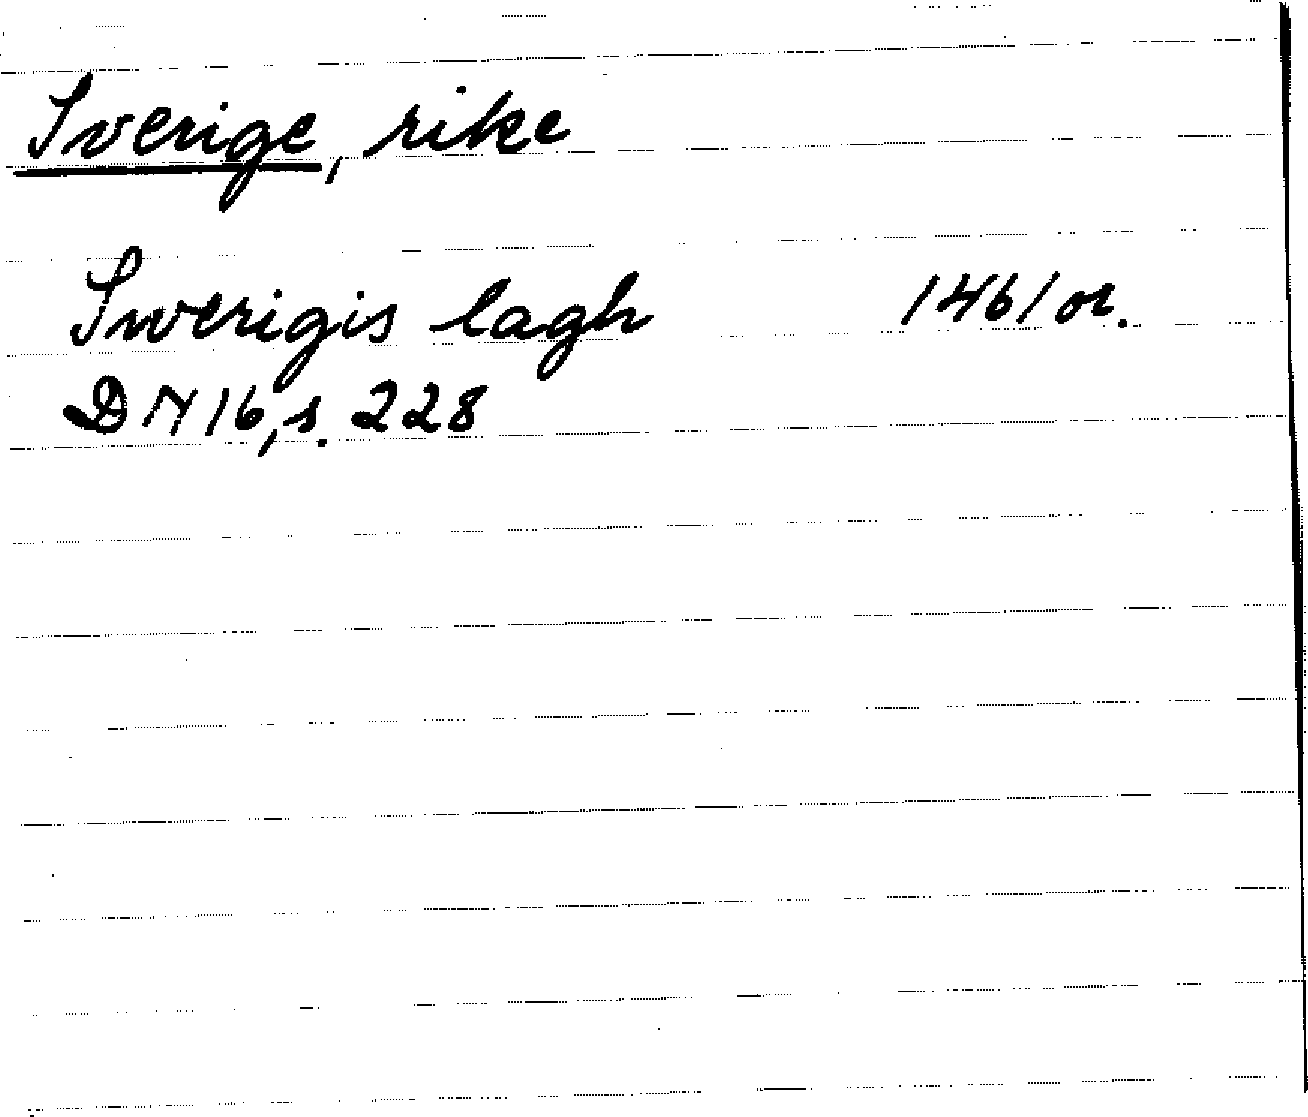 Sverige, rike
Swerigis lagh 1461 or.
DN 16, s. 228